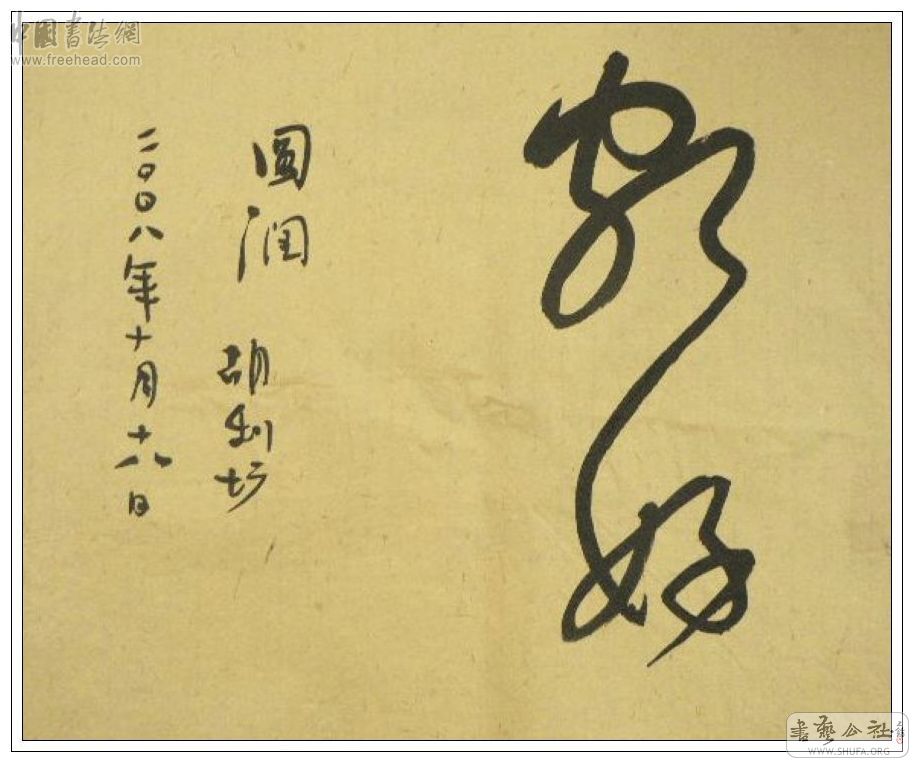 家好
圆润 胡利
二〇〇八年十月十八日
中国书法網
www.freehead.com
书艺公社
WWW.SHUFA.ORG